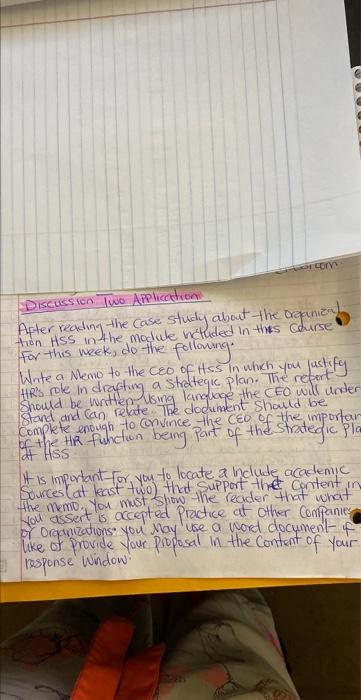 Discussion Two Application
After reading the case study about the Organizat
tion HSS in the module included in this course
For this week, do the following.
Write a Memo to the CEO of HSS in which you justify
HR's role in drafting a strategic plan. The report
Should be written using language the CEO will under
Stand and can relate. The document Should be
Complete enough to convince the CEO of the importan
of the HR function being part of the strategic pla
at HSS.
It is important for you to locate & include academic
Sources (at least two) that support the content in
the memo. You must show the reader that what
you assert is accepted Practice at other Companies
or Organizations. you May use a word document if
like or provide your proposal in the content of your
response window.